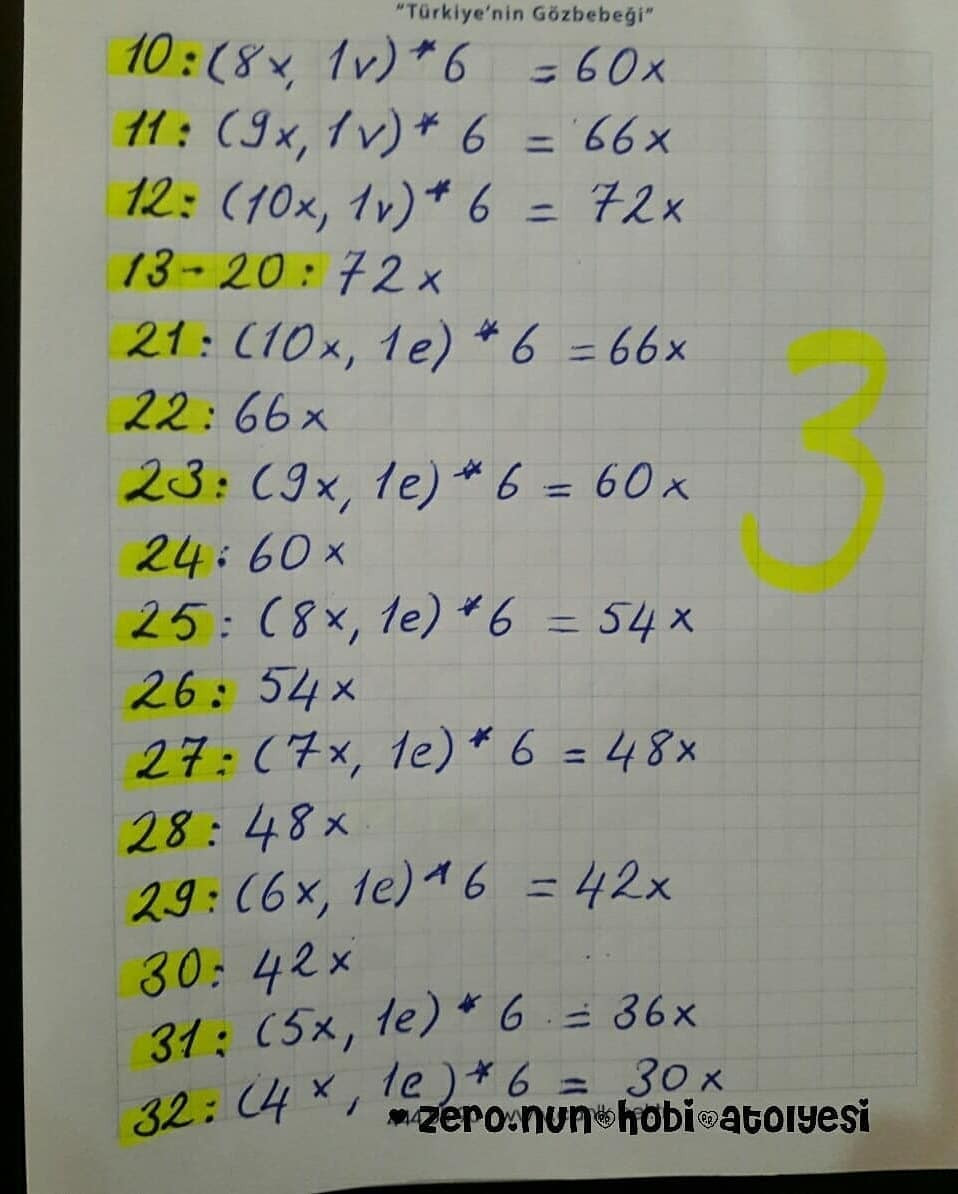 "Türkiye'nin Gözbebeği"
10: (8x, 1v) * 6 = 60x
11: (9x, 1v) * 6 = 66x
12: (10x, 1v) * 6 = 72x
13-20: 72x
21: (10x, 1e) * 6 = 66x
22: 66x
23: (9x, 1e) * 6 = 60x
24: 60x
25: (8x, 1e) * 6 = 54x
26: 54x
27: (7x, 1e) * 6 = 48x
28: 48x
29: (6x, 1e) * 6 = 42x
30: 42x
31: (5x, 1e) * 6 = 36x
32: (4x, 1e) * 6 = 30x
3
zero.nun hobi atolyesi